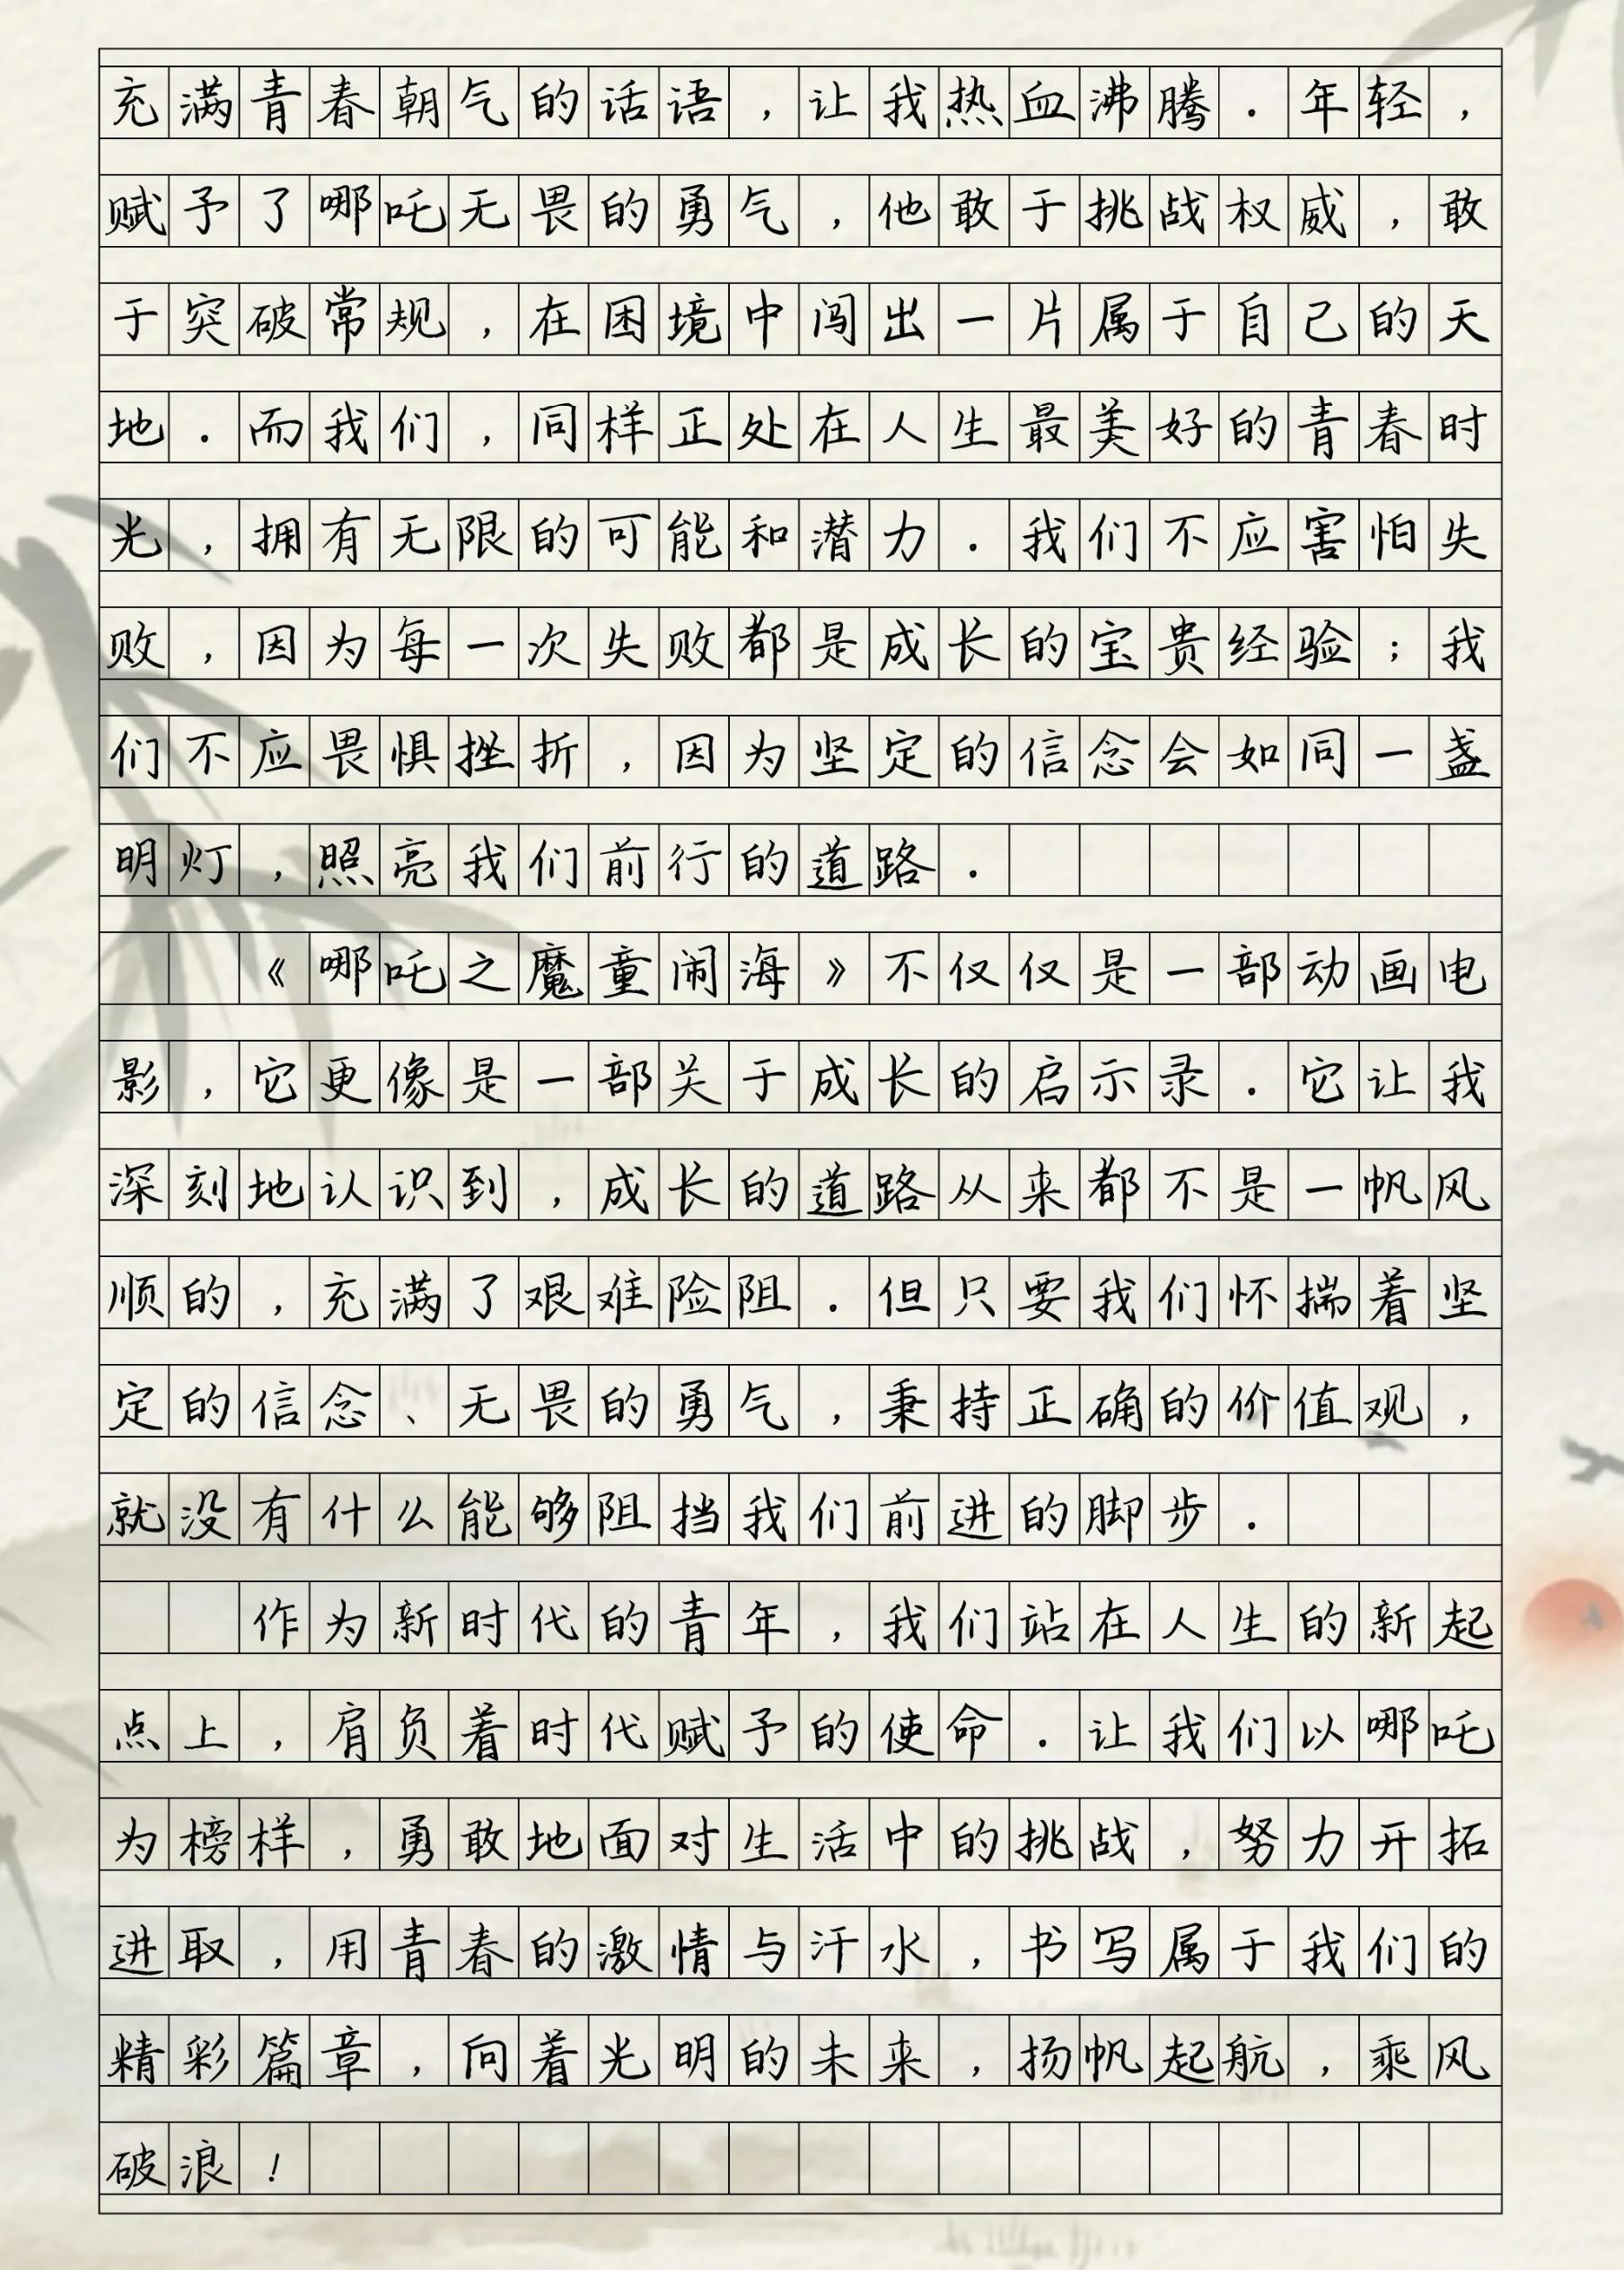 充满青春朝气的话语，让我热血沸腾．年轻，
赋予了哪吒无畏的勇气，他敢于挑战权威，敢
于突破常规，在困境中闯出一片属于自己的天
地．而我们，同样正处在人生最美好的青春时
光，拥有无限的可能和潜力．我们不应害怕失
败，因为每一次失败都是成长的宝贵经验；我
们不应畏惧挫折，因为坚定的信念会如同一盏
明灯，照亮我们前行的道路．
《哪吒之魔童闹海》不仅仅是一部动画电
影，它更像是一部关于成长的启示录．它让我
深刻地认识到，成长的道路从来都不是一帆风
顺的，充满了艰难险阻．但只要我们怀揣着坚
定的信念、无畏的勇气，秉持正确的价值观，
就没有什么能够阻挡我们前进的脚步．
作为新时代的青年，我们站在人生的新起
点上，肩负着时代赋予的使命．让我们以哪吒
为榜样，勇敢地面对生活中的挑战，努力开拓
进取，用青春的激情与汗水，书写属于我们的
精彩篇章，向着光明的未来，扬帆起航，乘风
破浪！